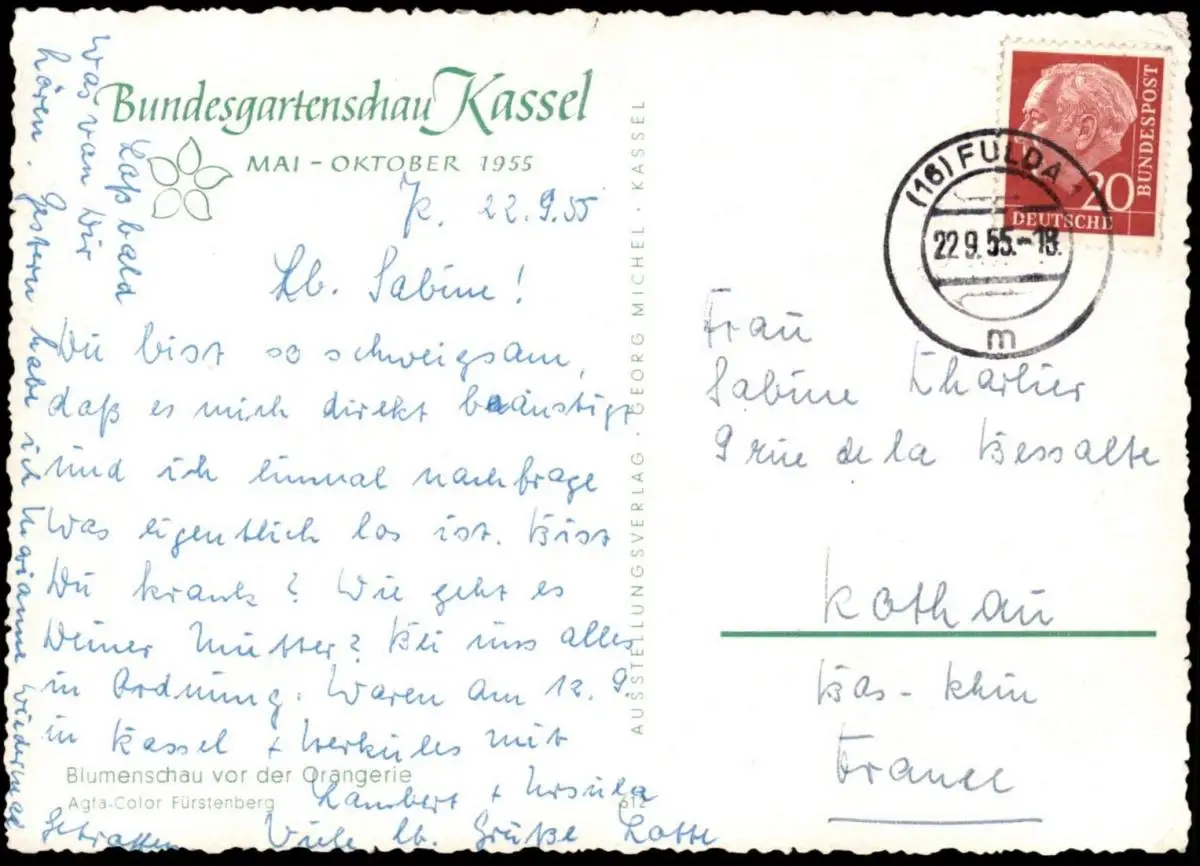 Bundesgartenschau Kassel
MAI – OKTOBER 1955
22.9.55
Lb. Sabine!
Du bist so schweigsam,
daß es mich direkt beänstigt
und ich einmal nachfrage
was eigentlich los ist. Bist
Du krank? Wie geht es
Deiner Mutter? Bei uns alles
in Ordnung. Waren am 12. 9.
in Kassel + Herkules mit
Lambert + Ursula
Viele lb. Grüße Lotte
Laß bald
was von Dir
hören. Gestern habe ich Marianne wiedermal
getroffen
Blumenschau vor der Orangerie
Agfa-Color Fürstenberg
612
AUSSTELLUNGSVERLAG · GEORG MICHEL · KASSEL
20
DEUTSCHE
BUNDESPOST
(16) FULDA 1
22.9.55.-18.
m
Frau
Sabine Charlier
9 rue de la Bessalte
Rothau
Bas-Rhin
France